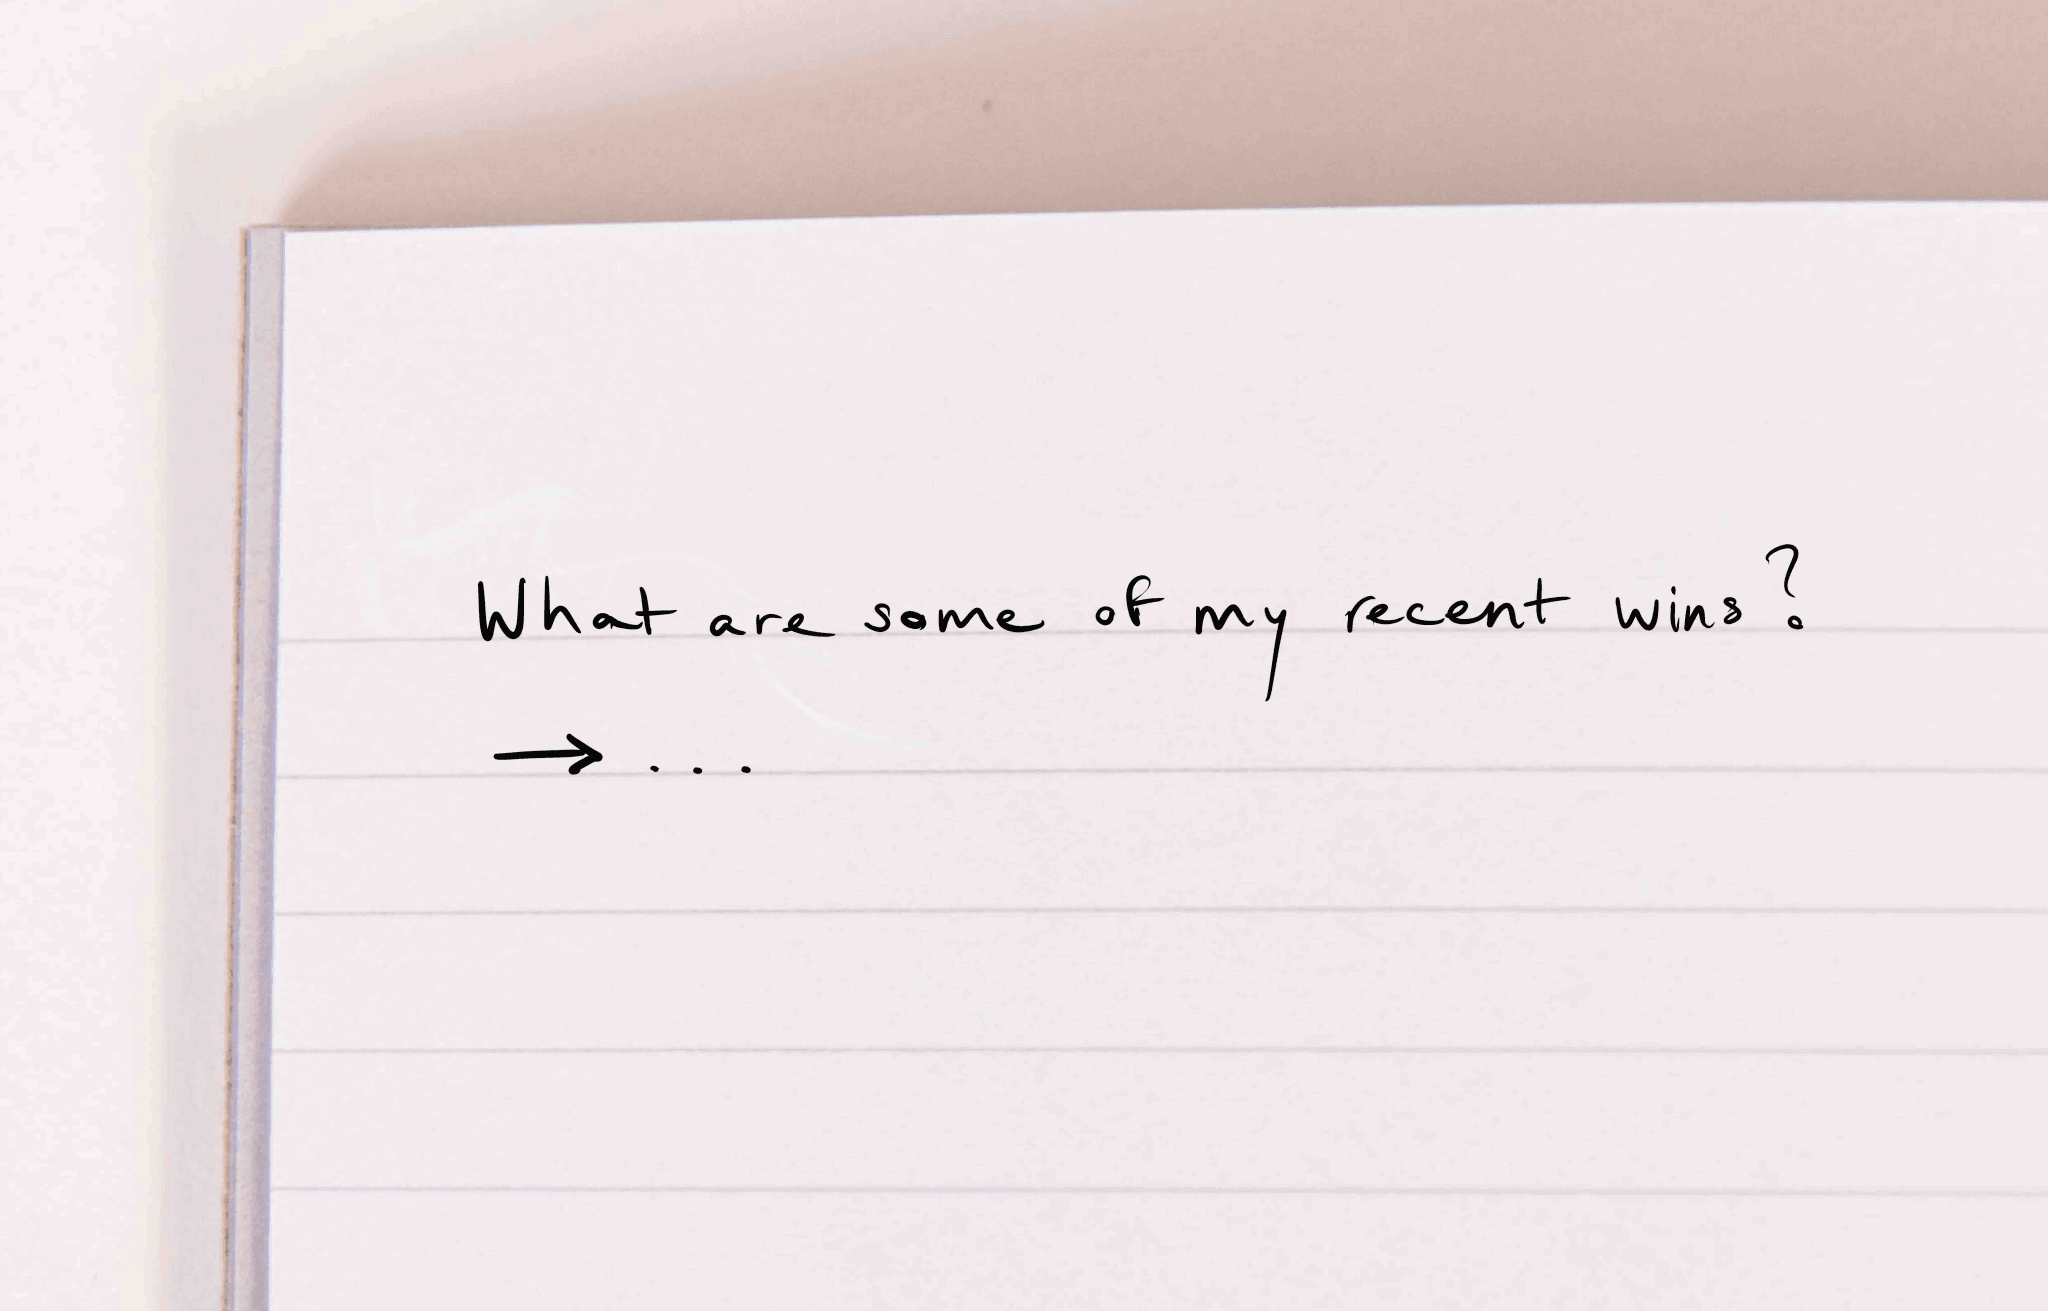 What are some of my recent wins?
→ ...